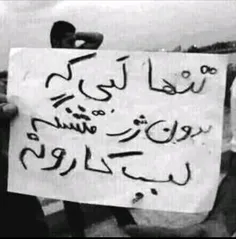 تنها لبی که
بدون رژ قشنگه
لب کارونه